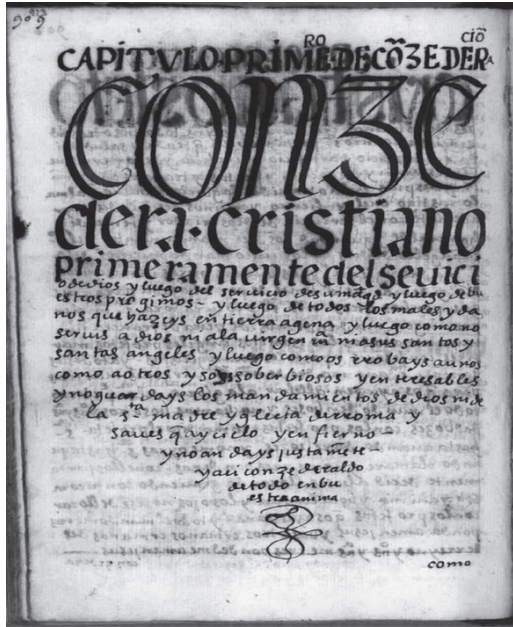 909
CAPITVLO·PRIMERO·DE CŌZEDERACIŌ
conze
dera·cristiano
primeramente del seuici
o de dios y luego del seruicio de su magd y luego de bu
estros progimos - y luego de todos los males y da
nos que hazeys en tierra agena y luego como no
seruis a dios ni a la uirgen m̄ a sus santos y
santas angeles y luego como os rrobays a unos
como a otros y soys soberbiosos y enteresables
y no guardays los mandamientos de dios ni de
la sta madre yglecia de rroma y
saues q̄ ay cielo y enfierno -
y no andays justamēte -
y aci conzederaldo
de todo en bu
estra anima
como